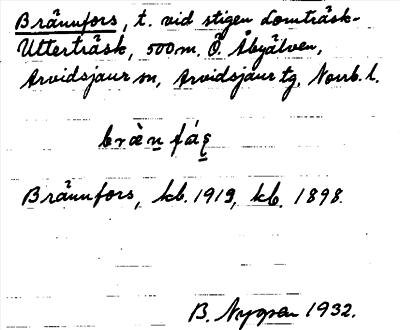 Brännfors, t. vid stigen Lomträsk-
Utterträsk, 500 m. Ö. Åbyälven,
Arvidsjaur sn, Arvidsjaur tg, Norrb. l.
bræ̀n fáʂ
Brännfors, kb. 1919, kb. 1898.
B. Nygren 1932.